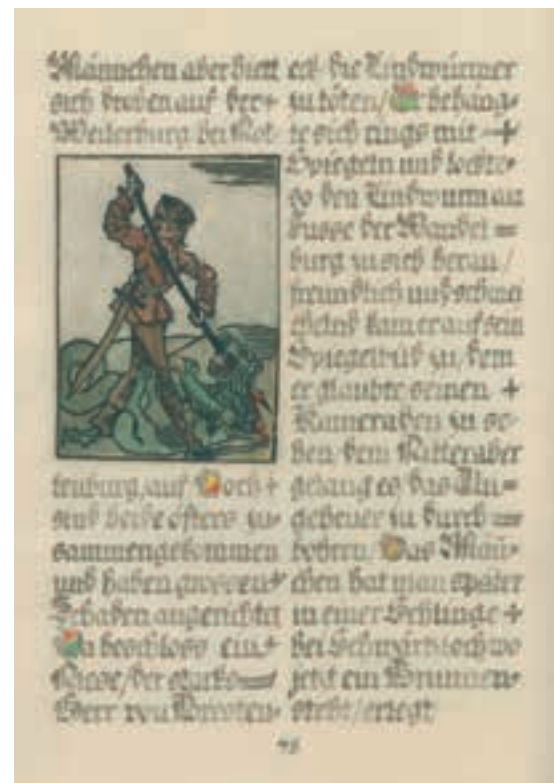 Männchen aber hielt
sich droben auf der
Weilerburg bei Rot
tenburg auf Doch
sind beide öfters zu-
sammengekommen
und haben grossen
Schaden angerichtet
Da beschloss ein
Riese/der starke
Herr von
es/die Lindwürmer
zu töten/Er behäng-
te sich rings mit
Spiegeln und lockte
so den Lindwurm am
Fusse der Wandel=
burg zu sich heran/
freundlich und schmei
chelnd kam er auf sein
Spiegelbild zu/dem
er glaubte seinen
Kameraden zu se-
hen/dem Ritter aber
gelang es das Un=
geheuer zu durch=
bohren. Das Männ-
chen hat man später
in einer Schlinge
bei Schwärzloch wo
jetzt ein Brunnen
steht/erlegt